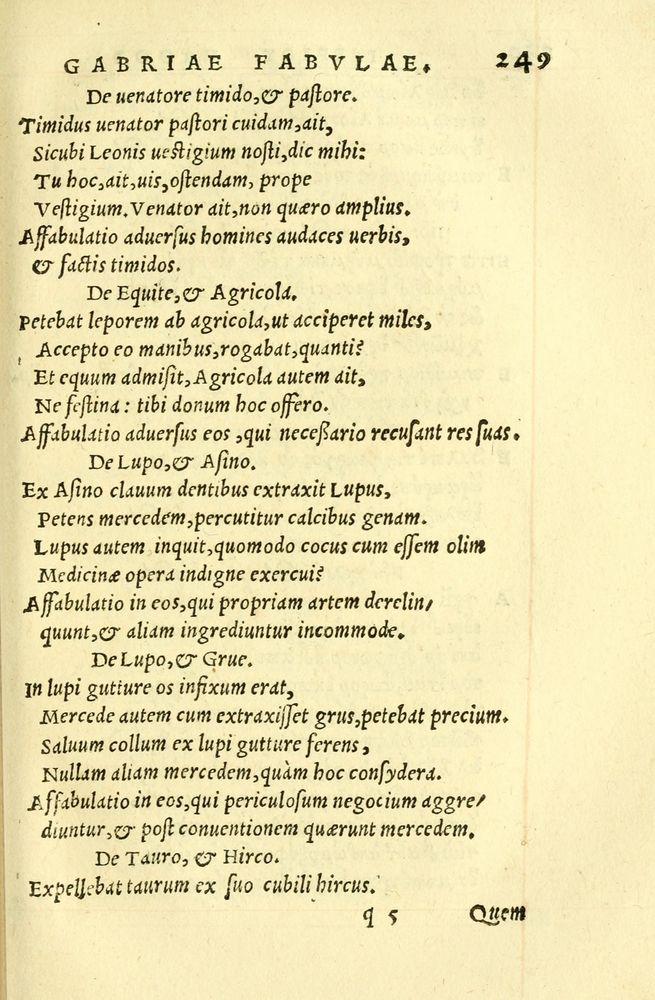 GABRIAE FABVLAE. 249
De uenatore timido, & pastore.
Timidus uenator pastori cuidam, ait,
Sicubi Leonis uestigium nosti, dic mihi:
Tu hoc, ait, uis, ostendam, prope
Vestigium. Venator ait, non quæro amplius.
Affabulatio aduersus homines audaces uerbis,
& factis timidos.
De Equite, & Agricola.
Petebat leporem ab agricola, ut acciperet miles,
Accepto eo manibus, rogabat, quanti?
Et equum admisit, Agricola autem ait,
Ne festina: tibi donum hoc offero.
Affabulatio aduersus eos, qui necessario recusant res suas.
De Lupo, & Asino.
Ex Asino clauum dentibus extraxit Lupus,
Petens mercedem, percutitur calcibus genam.
Lupus autem inquit, quomodo cocus cum essem olim
Medicinæ opera indigne exercui?
Affabulatio in eos, qui propriam artem derelin/
quunt, & aliam ingrediuntur incommode.
De Lupo, & Grue.
In lupi gutture os infixum erat,
Mercede autem cum extraxisset grus, petebat precium.
Saluum collum ex lupi gutture ferens,
Nullam aliam mercedem, quàm hoc consydera.
Affabulatio in eos, qui periculosum negocium aggre/
diuntur, & post conuentionem quærunt mercedem.
De Tauro, & Hirco.
Expellebat taurum ex suo cubili hircus.
q 5 Quem